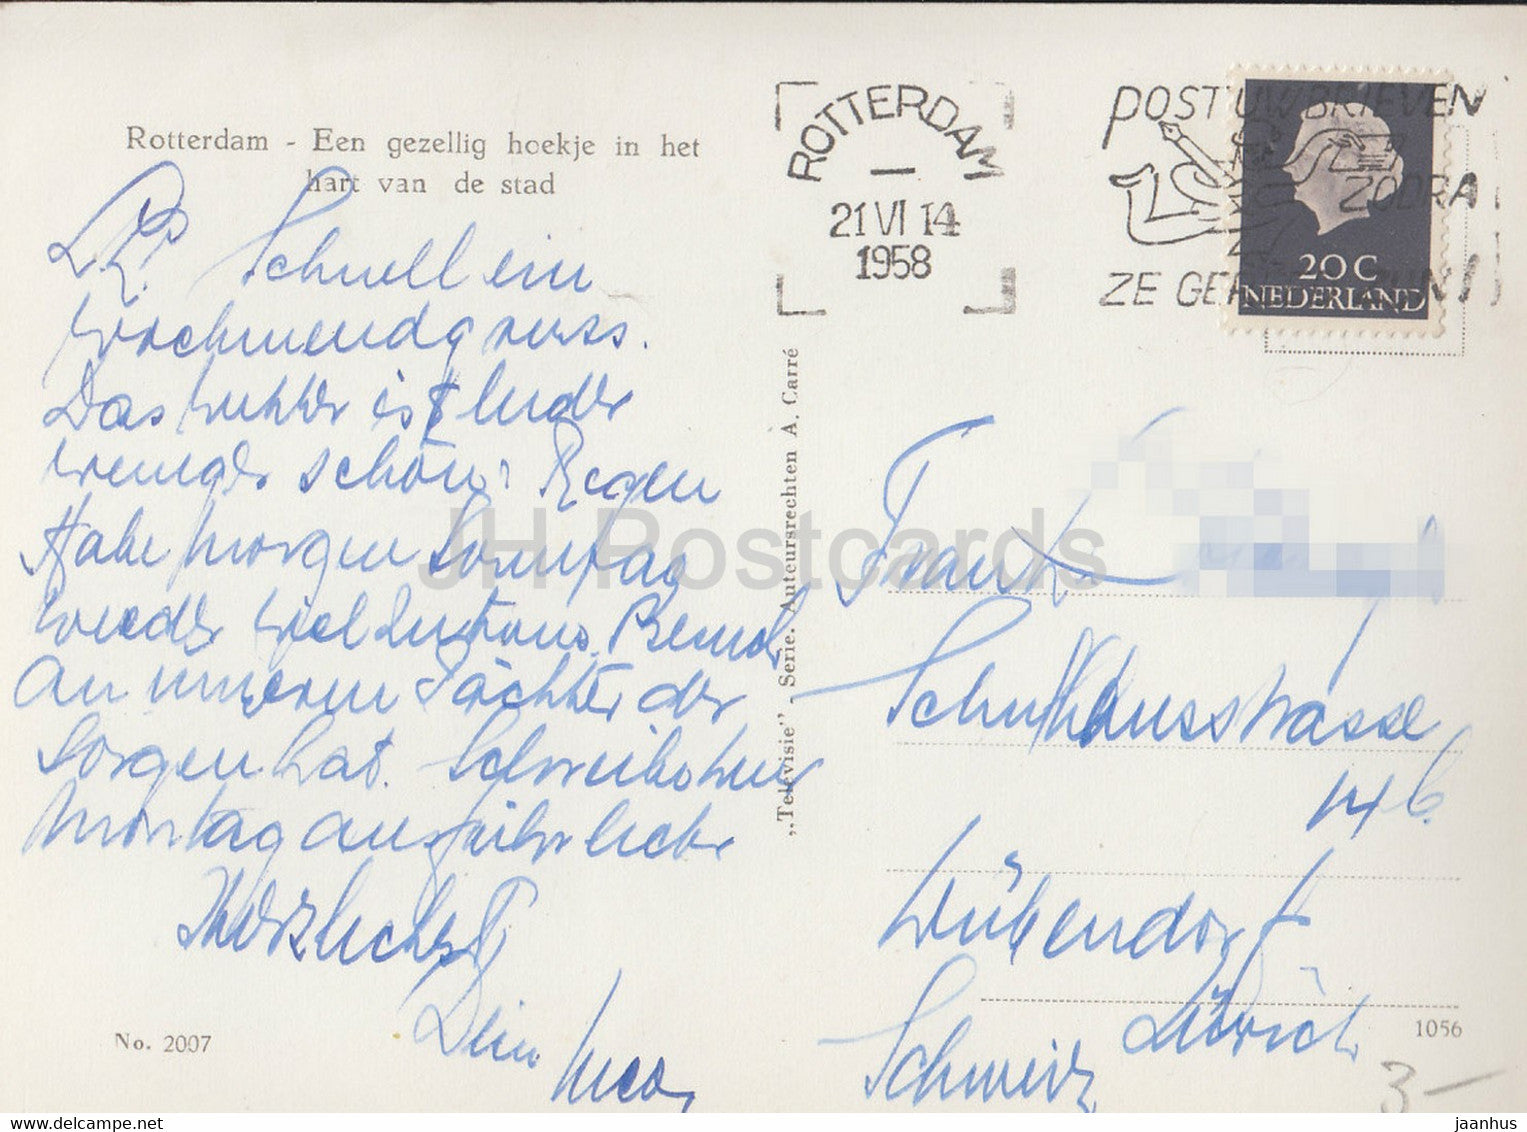 Rotterdam - Een gezellig hoekje in het
hart van de stad
ROTTERDAM
21 VI 14
1958
POST UW BRIEVEN
ZODRA
ZE GE
20 C
NEDERLAND
L. R! Schnell ein
Wochenendgruss.
Das Wetter ist leider
weniger schön. Regen
Habe morgen Sonntag
wieder viel Besuch
An unserem Pächter der
Sorgen hat. Schreibe Ihnen
Montag ausführlicher
Herzlichst
Dein
"Televisie" - Serie. Auteursrechten A. Carré
Schulhausstrasse
14 b
Dübendorf
Zürich
Schweiz
No. 2007
1056
3-
JH Postcards
www.delcampe.net
jaanhus